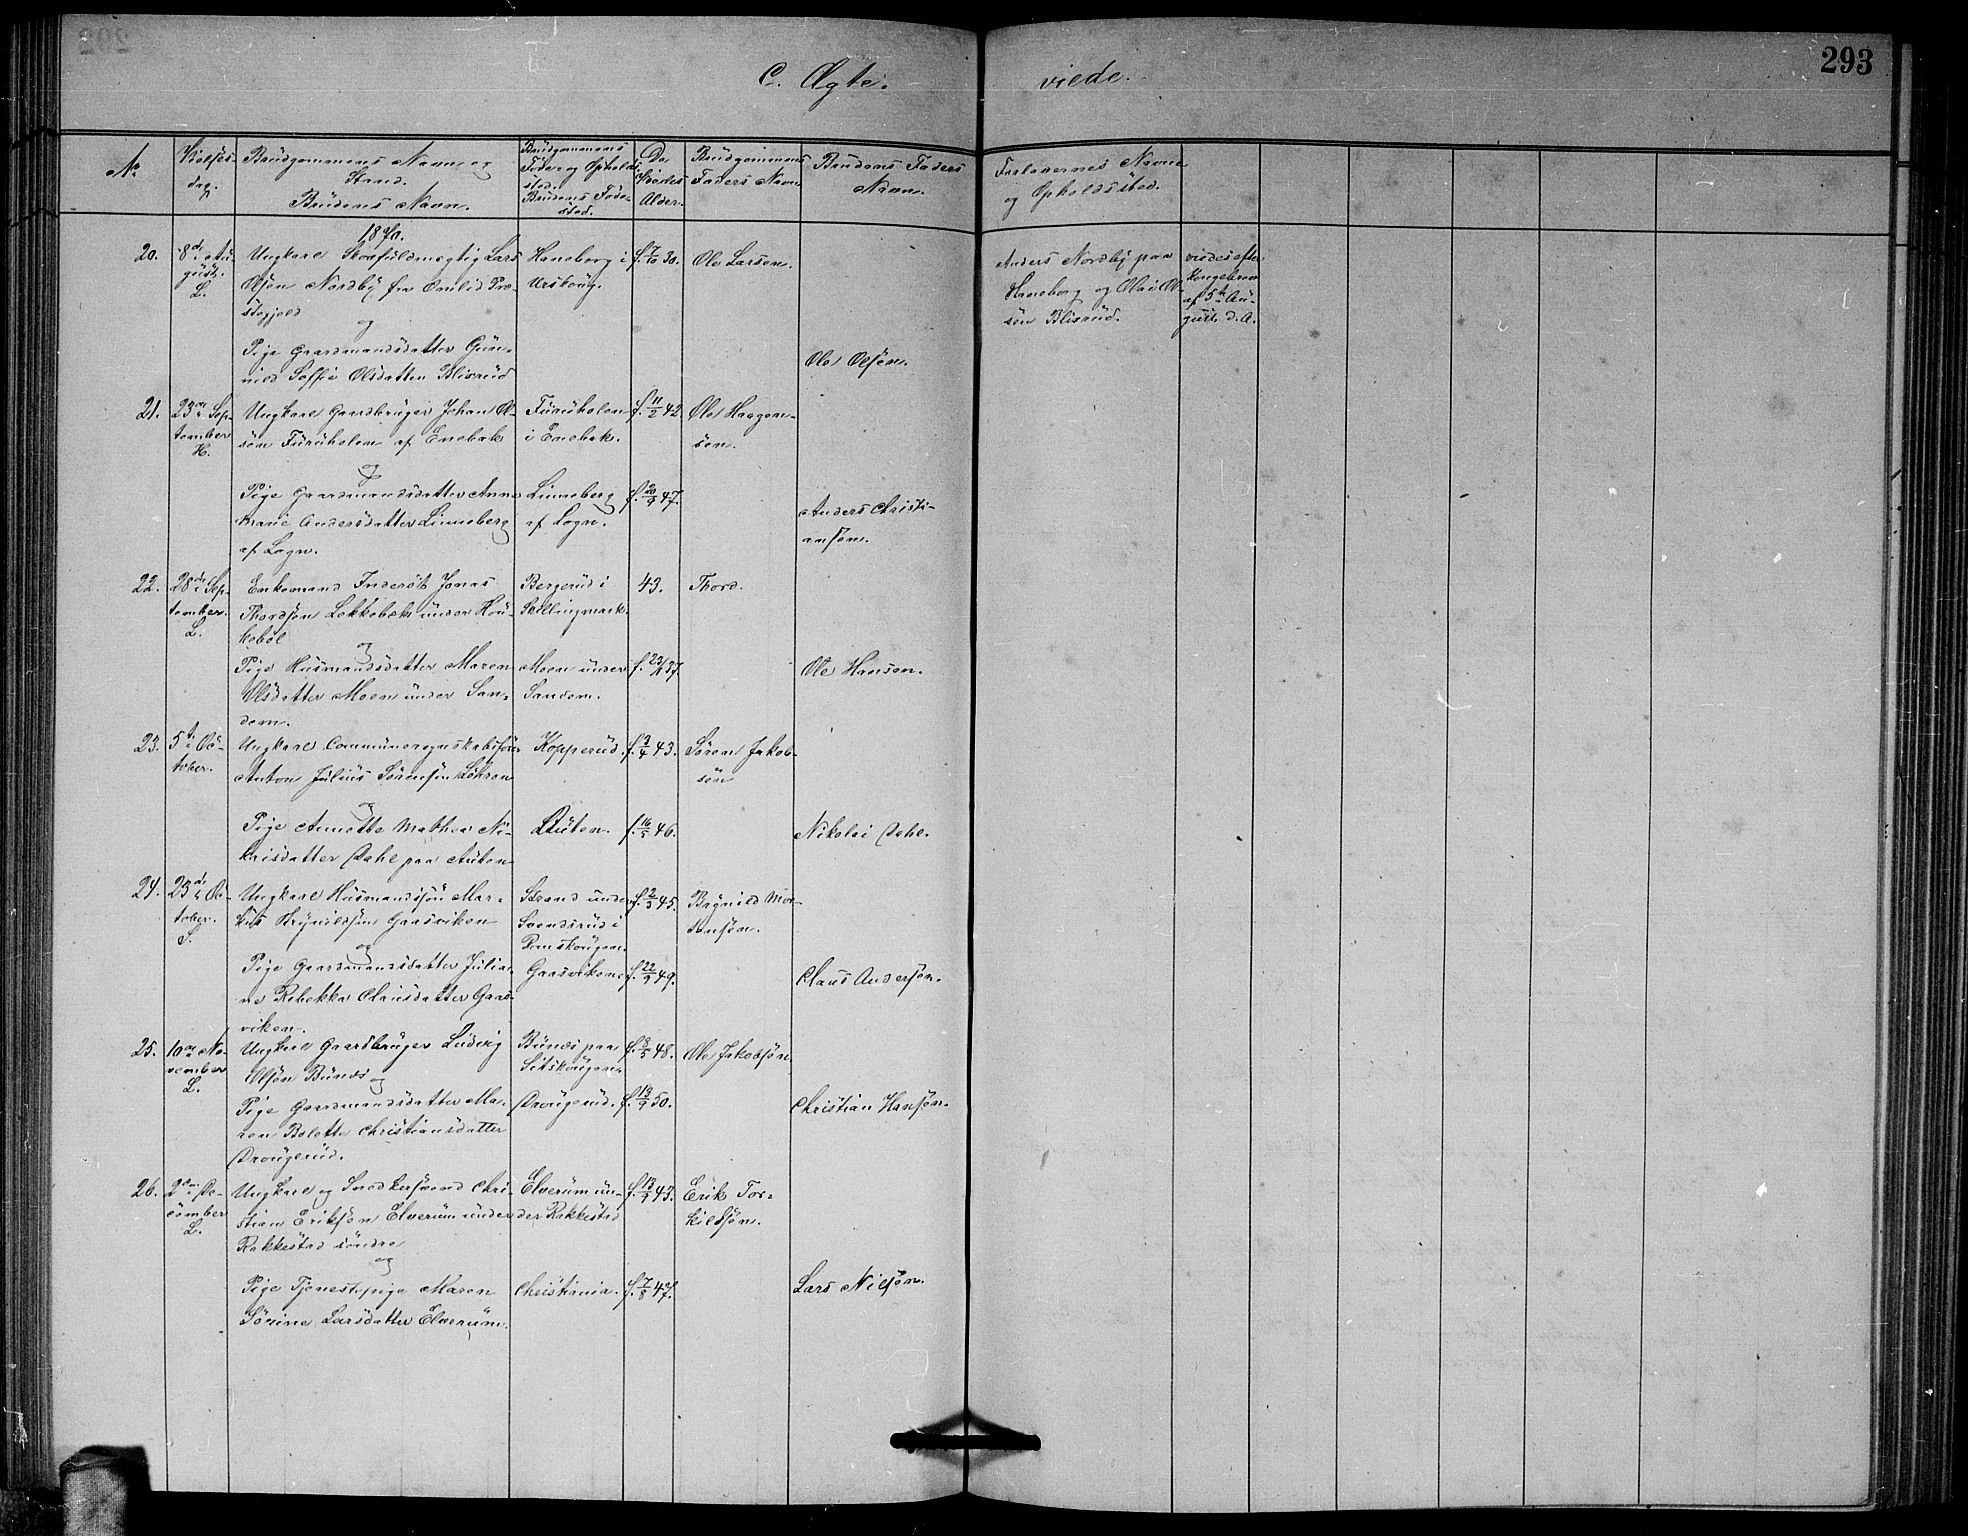 293
C. Ægte- viede.
No
Vielses-
dag.
Brudgommens Navn og
Stand.
Brudens Navn.
Brudgommens
Føde og Opholds
sted.
Brudens Føde-
sted.
De
Viedes
Alder.
Brudgommens
Faders Navn
Brudens Faders
Navn.
Forlovernes Navne
og Opholdssted.
1870.
20.
8de Au-
gust.
L.
Ungkarl Skovfuldmægtig Lars
Olsøn Nordby fra Præ-
stegjeld
og
Pige Gaardmandsdatter Gun-
nild Soffie Olsdatter Blixrud
Haneborg i
Urskoug.
f. 7/10 30.
Ole Larsen.
Ole Olsøn.
Anders Nordby paa
Haneborg og Ole Ol-
søn Blixrud.
viedes efter
Kongebrev
af 5te Au-
gust d. A.
21.
23de Sep-
tember
H.
Ungkarl Gaardbruger Johan Ol-
søn Furuholen af Enebak
og
Pige Gaardmandsdatter Anne
Marie Andersdatter Linneberg
af Sogn.
Furuholen
i Enebak.
Linneberg
af Sogn.
f. 11/2 42
f. 20/9 47.
Ole Haagen-
søn.
Anders Christi-
ansøn.
22.
28de Sep-
tember.
L.
Enkemand Inderst Jonas
Thordsøn Lekkebæk under Hou-
kebøl
og
Pige Husmandsdatter Maren
Olsdatter Moen under San-
dem.
Bergerud i
Skillingmark.
Moen under
Sandem.
43.
f. 23/11 37.
Thord.
Ole Hansen.
23.
5te Oc-
tober.
Ungkarl Communeregnskabsfører
Anton Julius Sørensøn Løkren
og
Pige Annette Mathea Ni-
kolaisdatter Dahl paa Auten
Kopperud.
Auten.
f. 3/4 43.
f. 16/5 46.
Søren Jakob-
søn
Nikolai Dahl.
24.
23de Oc-
tober.
S.
Ungkarl Husmandssøn Mar-
kus Brynildsøn Gaasviken
og
Pige Gaardmandsdatter Julia-
ne Rebekka Clausdatter Gaas-
viken.
Strand under
Svendsrud i
Rømskougen.
Gaasviken
f. 2/3 45.
f. 22/9 49.
Brynild Mor-
tensøn.
Claus Andersøn.
25.
10de No-
vember
L.
Ungkarl Gaardbruger Ludvig
Olsøn Bunes
og
Pige Gaardmandsdatter Ma-
ren Bolette Christiansdatter
Drougerud.
Bunes paa
Setskougen.
Drougerud.
f. 8/5 48.
f. 13/9 50.
Ole Jakobsøn
Christian Hansøn.
26.
2den De-
cember
L.
Ungkarl og Snedkersvend Chri-
stian Eriksøn Elverum under
Rakkestad søndre
og
Pige Tjenestepige Maren
Sørine Larsdatter Elverum.
Elverum un-
der Rakkestad
Christiania.
f. 13/9 43.
f. 7/8 47.
Erik Tor-
kildsøn.
Lars Nilsøn.